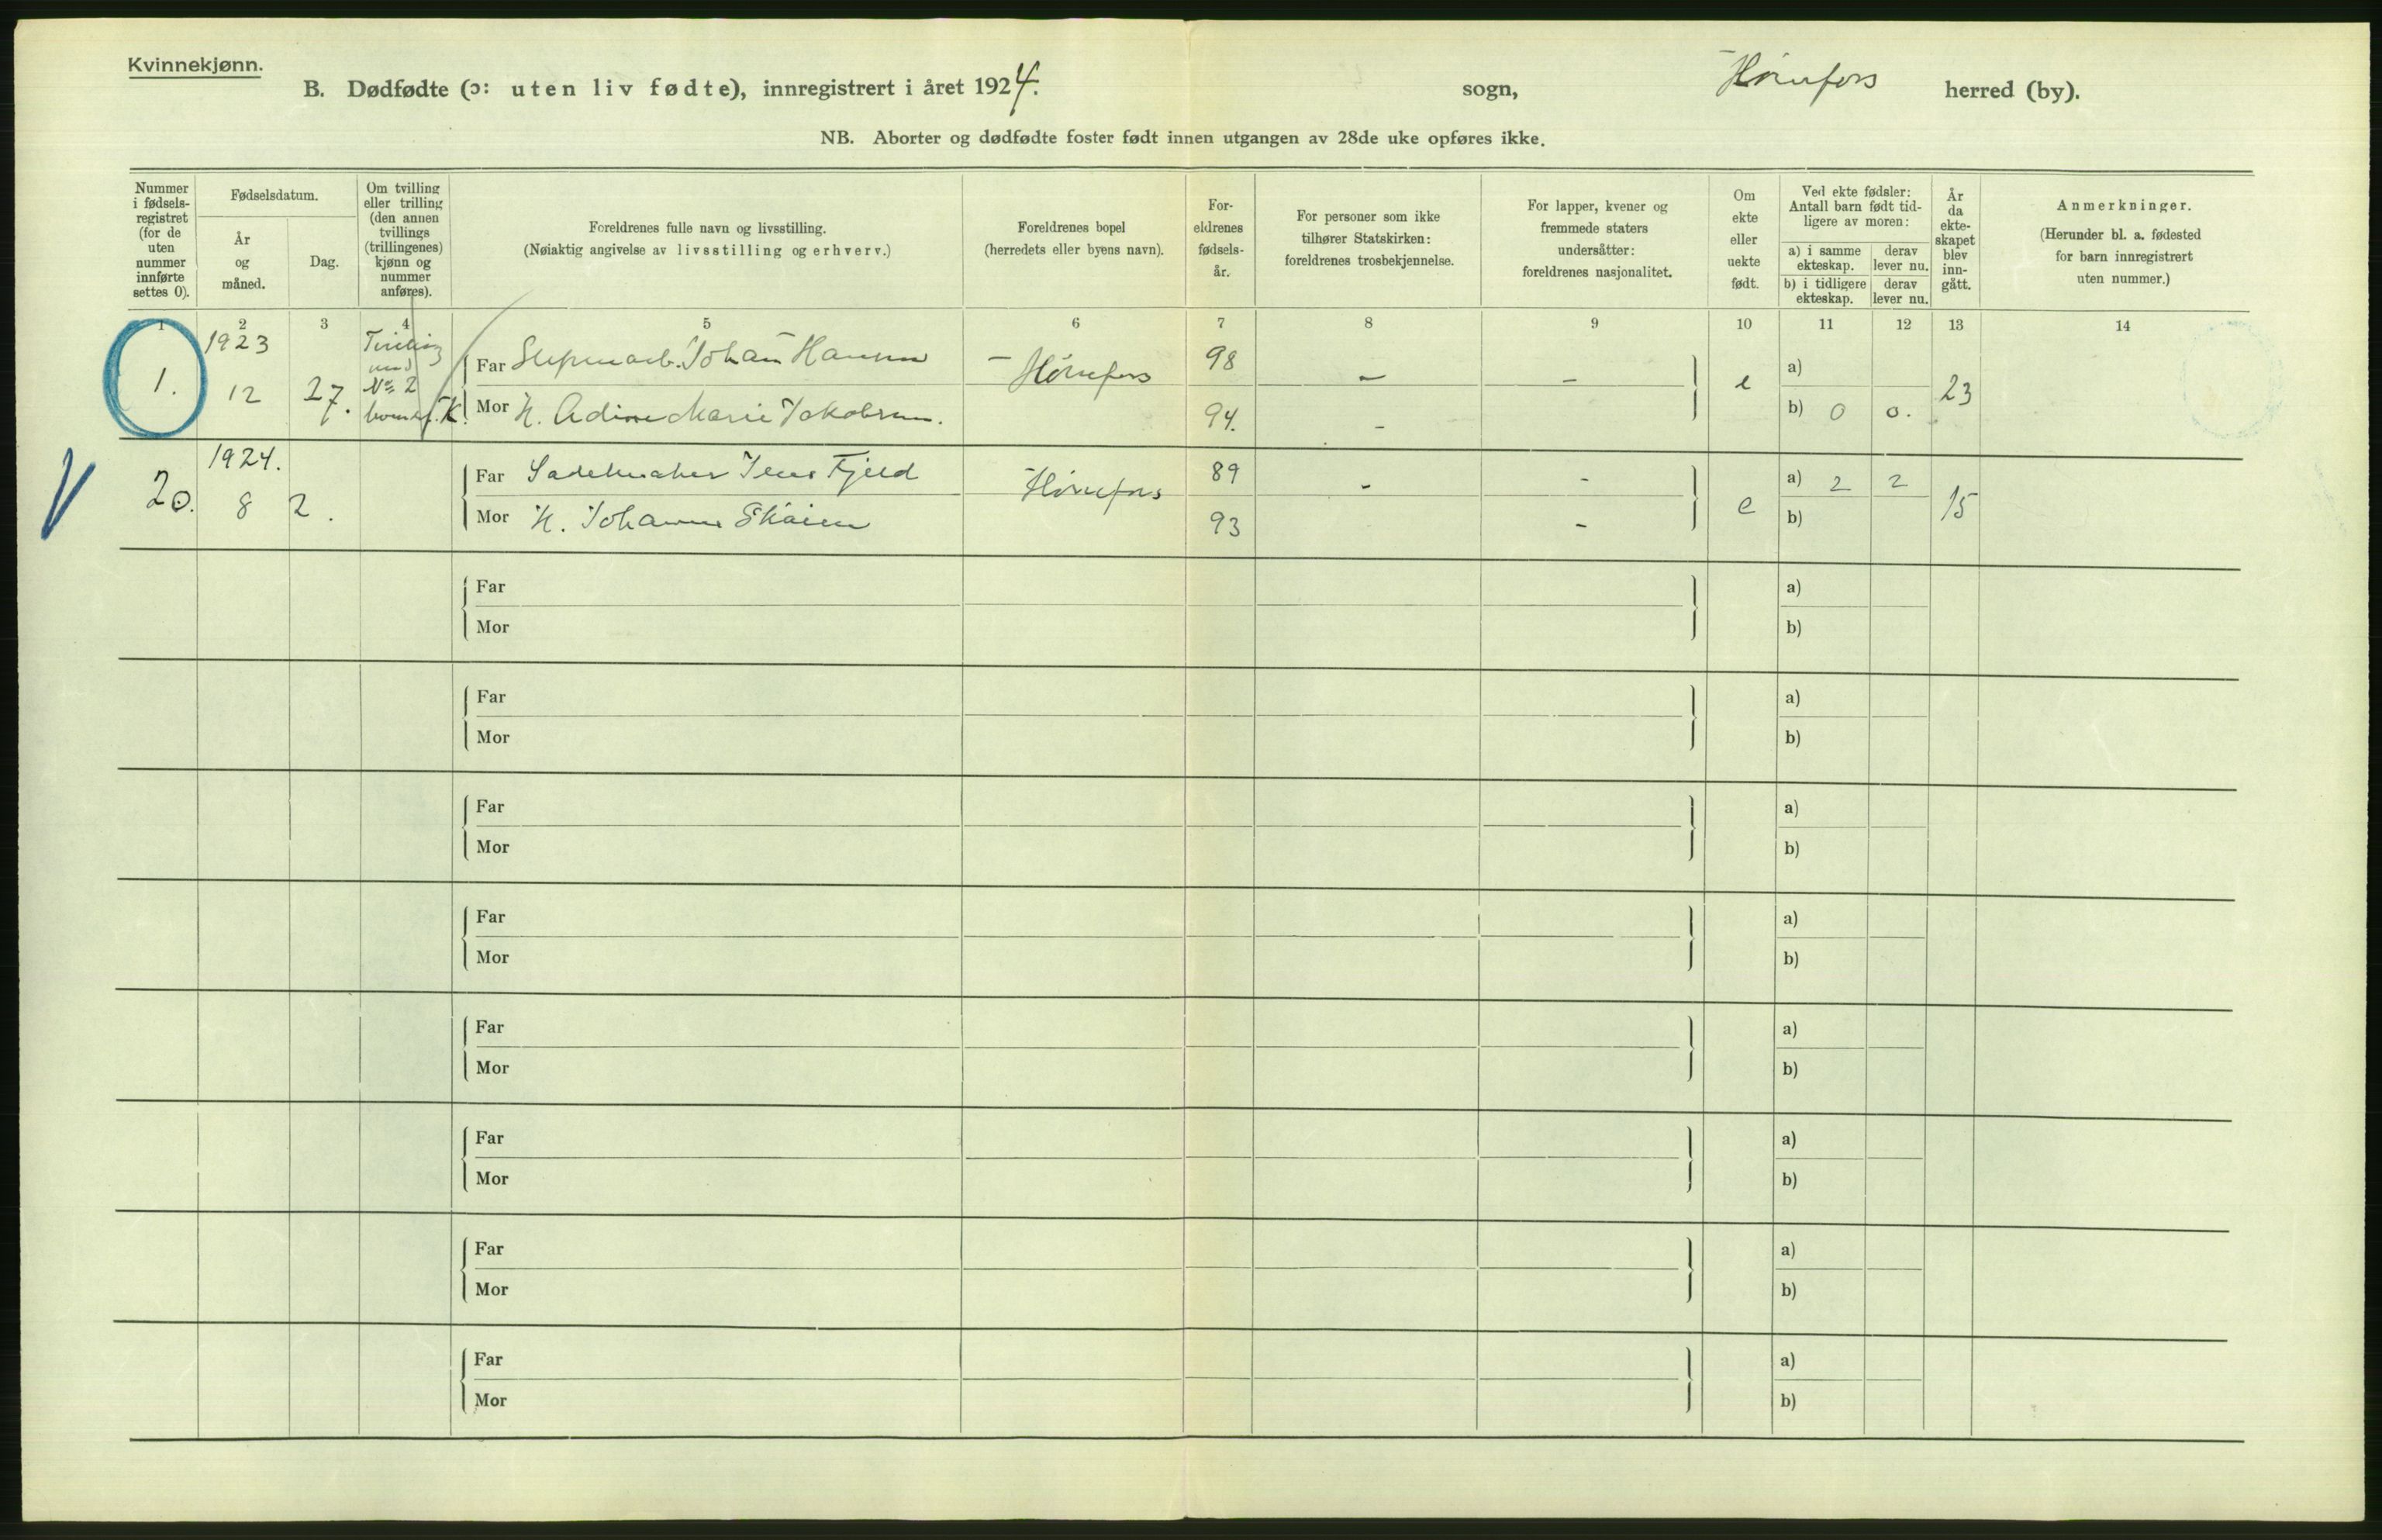 Kvinnekjønn.
B. Dødfødte (ɔ: uten liv fødte), innregistrert i året 1924. sogn, Hønefoss herred (by).
NB. Aborter og dødfødte foster født innen utgangen av 28de uke opføres ikke.
Nummer i fødselsregistret (for de uten nummer innførte settes 0).
Fødselsdatum.
År og måned.
Dag.
Om tvilling eller trilling (den annen tvillings (trillingenes) kjønn og nummer anføres).
Foreldrenes fulle navn og livsstilling.
(Nøiaktig angivelse av livsstilling og erhverv.)
Foreldrenes bopel
(herredets eller byens navn).
Foreldrenes fødselsår.
For personer som ikke tilhører Statskirken: foreldrenes trosbekjennelse.
For lapper, kvener og fremmede staters undersåtter: foreldrenes nasjonalitet.
Om ekte eller uekte født.
Ved ekte fødsler: Antall barn født tidligere av moren:
a) i samme ekteskap. derav lever nu.
b) i tidligere ekteskap. derav lever nu.
År da ekteskapet blev inngått.
Anmerkninger.
(Herunder bl. a. fødested for barn innregistrert uten nummer.)
1 2 3 4 5 6 7 8 9 10 11 12 13 14
1. 1923 12 27. Tvilling med No 2 K.
Far Johan Hansen Hønefoss 98 - - e a) 23
Mor H. Adine Marie Jakobsen. 94. - b) 0 0.
20. 1924. 8 2.
Far Sadelmaker Jens Fjeld Hønefoss 89 - - e a) 2 2 15
Mor H. Johanne 93 - b)
Far a)
Mor b)
Far a)
Mor b)
Far a)
Mor b)
Far a)
Mor b)
Far a)
Mor b)
Far a)
Mor b)
Far a)
Mor b)
Far a)
Mor b)